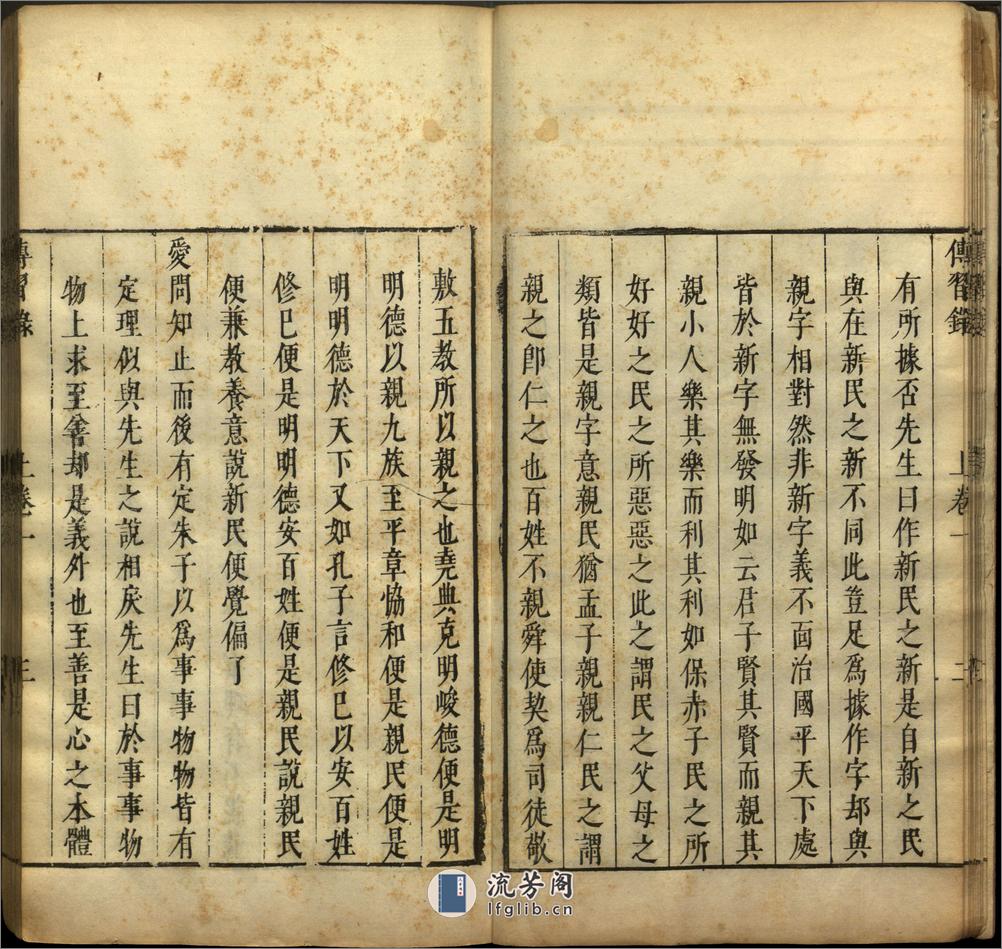 傳習錄 上卷一 二
有所據否先生曰作新民之新是自新之民
與在新民之新不同此豈足為據作字却與
親字相對然非新字義下面治國平天下處
皆於新字無發明如云君子賢其賢而親其
親小人樂其樂而利其利如保赤子民之所
好好之民之所惡惡之此之謂民之父母之
類皆是親字意親民猶孟子親親仁民之謂
親之卽仁之也百姓不親舜使契為司徒敬
敷五教所以親之也堯典克明峻德便是明
明德以親九族至平章恊和便是親民便是
明明德於天下又如孔子言修己以安百姓
修己便是明明德安百姓便是親民說親民
便兼教養意說新民便覺偏了
愛問知止而後有定朱子以為事事物物皆有
定理似與先生之說相戾先生曰於事事物
物上求至善却是義外也至善是心之本體
傳習錄 上卷一 三
流芳阁
lfglib.cn